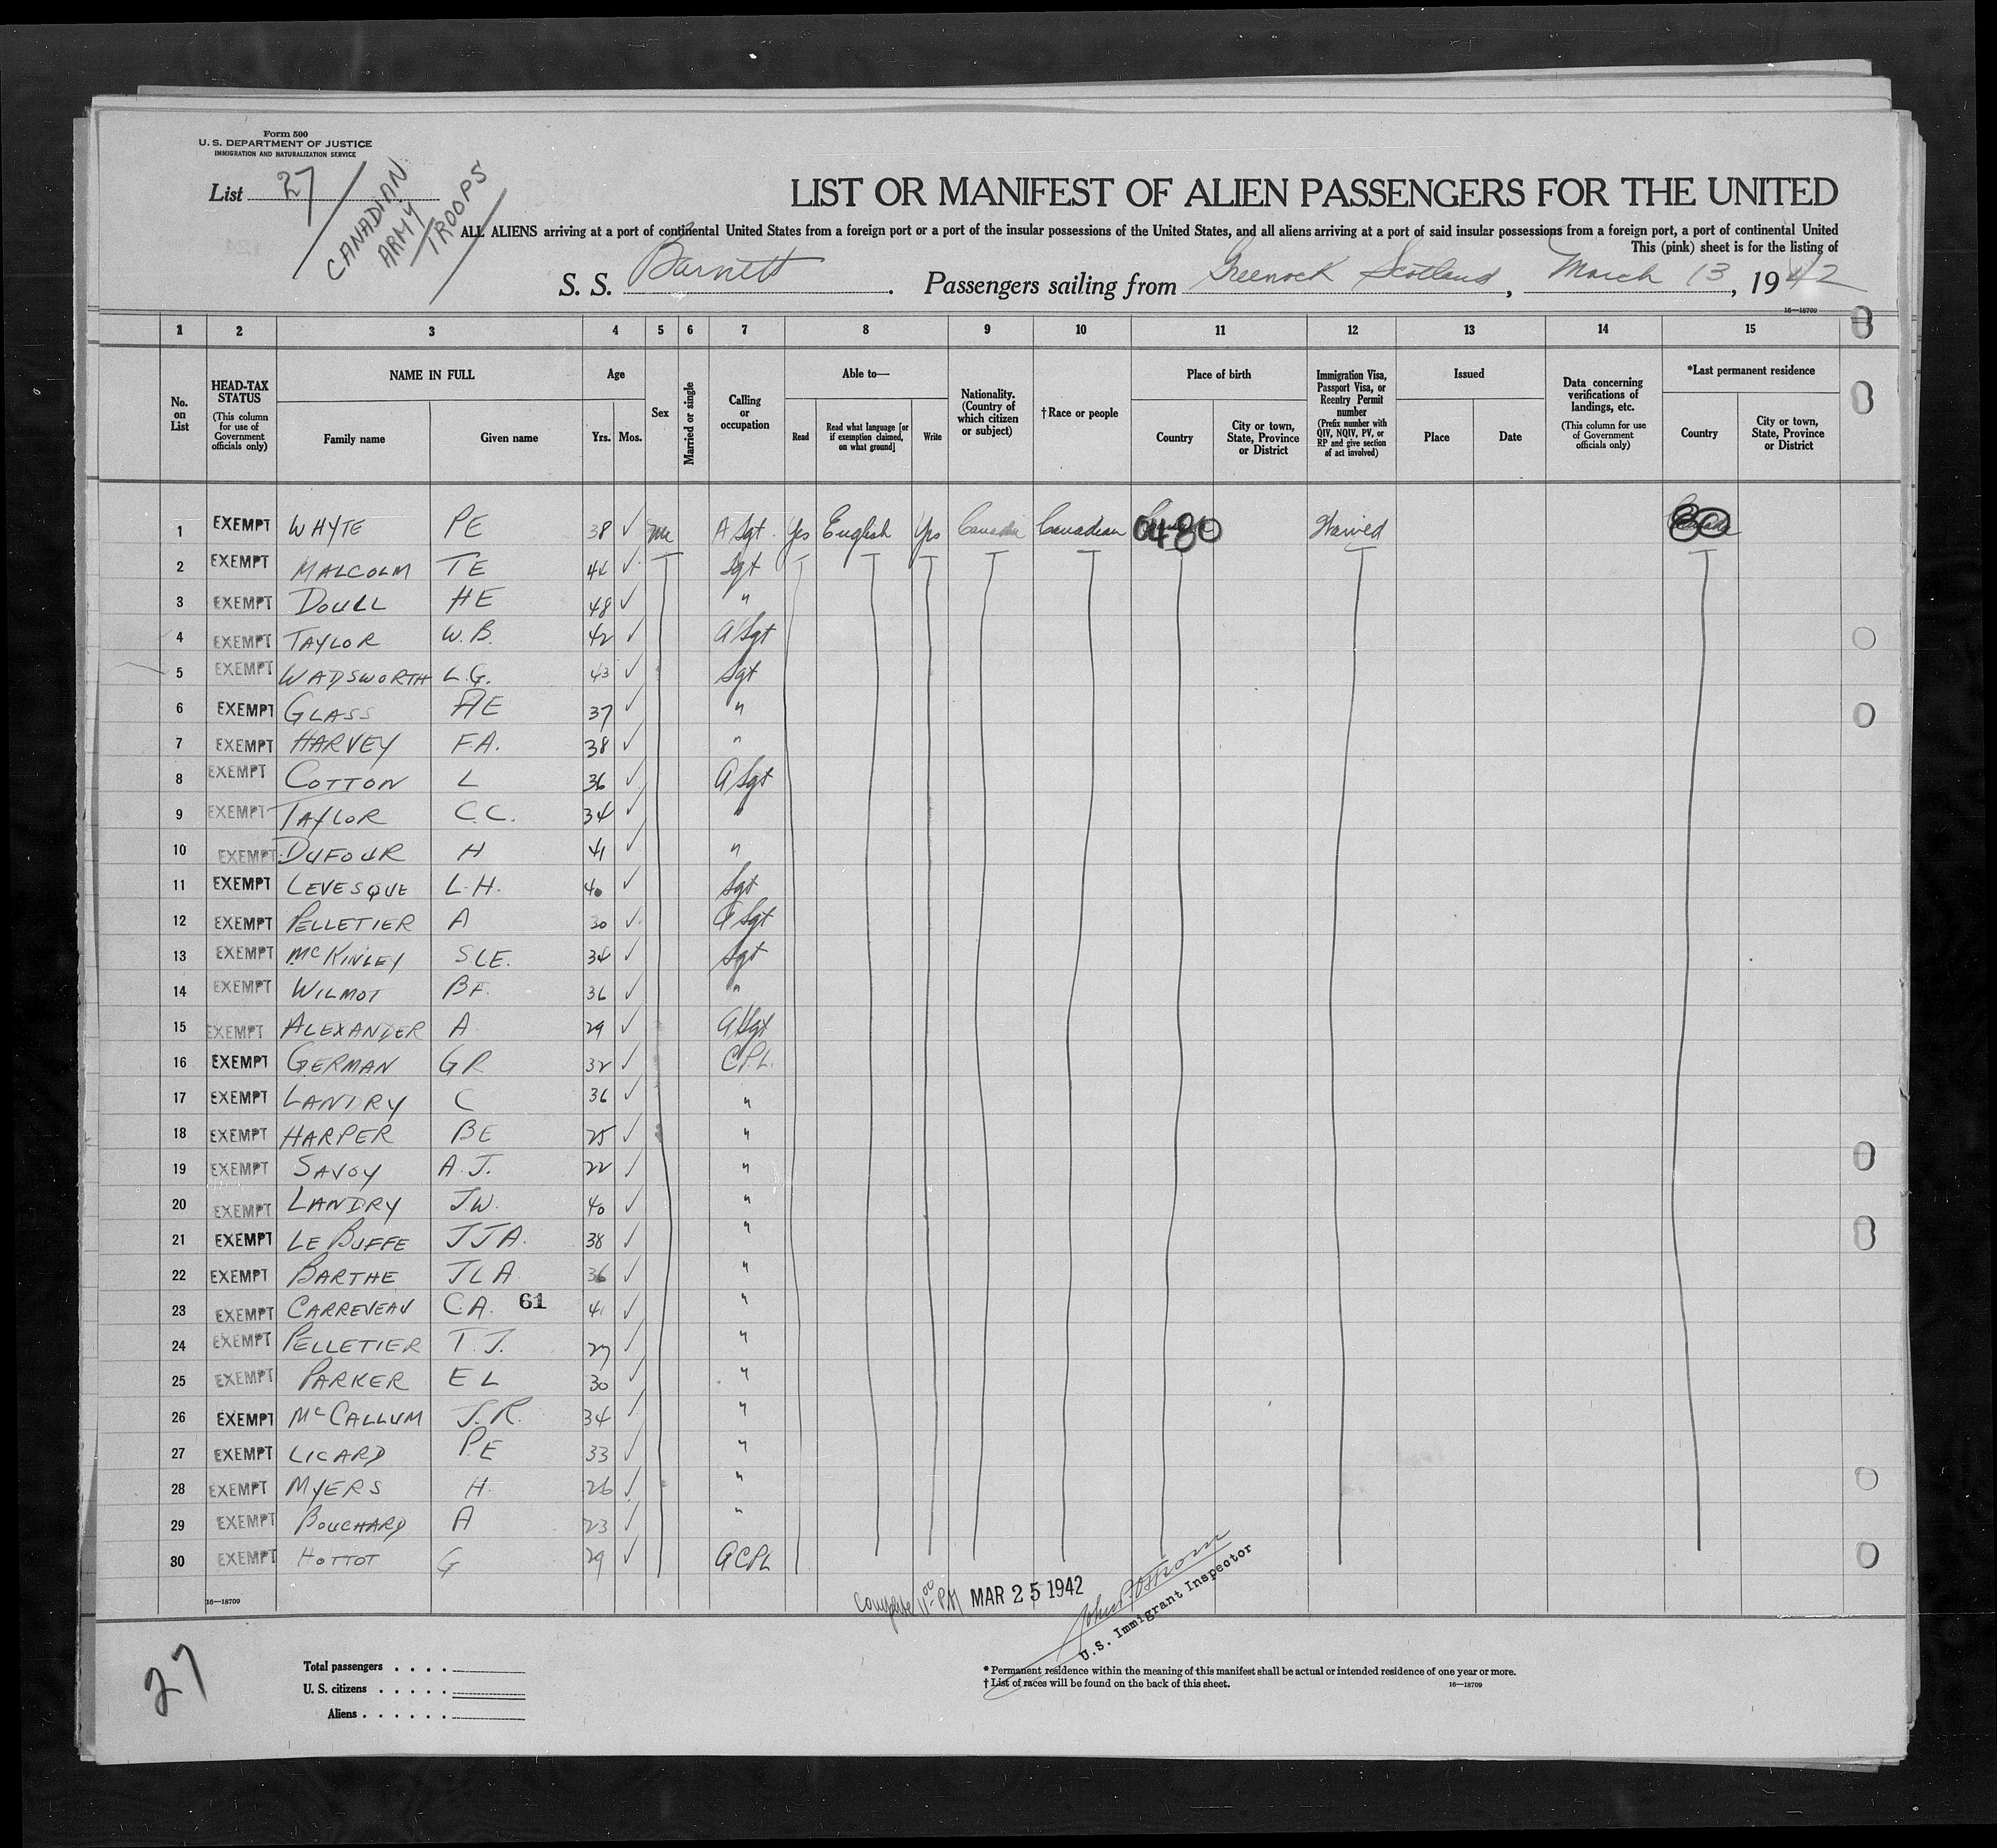 Form 500
U. S. DEPARTMENT OF JUSTICE
IMMIGRATION AND NATURALIZATION SERVICE
List 27
CANADIAN
ARMY
TROOPS
LIST OR MANIFEST OF ALIEN PASSENGERS FOR THE UNITED
ALL ALIENS arriving at a port of continental United States from a foreign port or a port of the insular possessions of the United States, and all aliens arriving at a port of said insular possessions from a foreign port, a port of continental United
This (pink) sheet is for the listing of
S. S. Barnett. Passengers sailing from Greenock Scotland, March 13, 1942
16—18709
1 2 3 4 5 6 7 8 9 10 11 12 13 14 15
No. on List
HEAD-TAX STATUS (This column for use of Government officials only)
NAME IN FULL
Family name Given name
Age
Yrs. Mos.
Sex
Married or single
Calling or occupation
Able to—
Read
Read what language [or if exemption claimed, on what ground]
Write
Nationality. (Country of which citizen or subject)
†Race or people
Place of birth
Country
City or town, State, Province or District
Immigration Visa, Passport Visa, or Reentry Permit number (Prefix number with QIV, NQIV, PV, or RP and give section of act involved)
Issued
Place Date
Data concerning verifications of landings, etc. (This column for use of Government officials only)
*Last permanent residence
Country
City or town, State, Province or District
1 EXEMPT WHYTE PE 38 ✓ M A Sgt. Yes English Yes Canada Canadian 0480 Waived 80
2 EXEMPT MALCOLM TE ✓ Sgt
3 EXEMPT DOULL HE 48 ✓ "
4 EXEMPT TAYLOR W.B. 42 ✓ A Sgt
5 EXEMPT WADSWORTH L.G. 43 ✓ Sgt
6 EXEMPT GLASS AE 37 ✓ "
7 EXEMPT HARVEY F.A. 38 ✓ "
8 EXEMPT COTTON L 36 ✓ A Sgt
9 EXEMPT TAYLOR C.C. 34 ✓ "
10 EXEMPT DUFOUR H 41 ✓ "
11 EXEMPT LEVESQUE L.H. 40 ✓ Sgt
12 EXEMPT PELLETIER A 30 ✓ A Sgt
13 EXEMPT McKINLEY SLE. 34 ✓ Sgt
14 EXEMPT WILMOT BF. 36 ✓ "
15 EXEMPT ALEXANDER A. 29 ✓ A Sgt
16 EXEMPT GERMAN GR 32 ✓ CPL.
17 EXEMPT LANDRY C 36 ✓ "
18 EXEMPT HARPER BE 25 ✓ "
19 EXEMPT SAVOY A.J. 22 ✓ "
20 EXEMPT LANDRY J.W. 40 ✓ "
21 EXEMPT LE BUFFE JJA. 38 ✓ "
22 EXEMPT BARTHE JLA 36 ✓ "
23 EXEMPT CARREVEAU C.A. 61 41 ✓ "
24 EXEMPT PELLETIER T.J. 27 ✓ "
25 EXEMPT PARKER EL 30 ✓ "
26 EXEMPT McCALLUM J.R. 34 ✓ "
27 EXEMPT LICARD P.E 33 ✓ "
28 EXEMPT MYERS H. 26 ✓ "
29 EXEMPT BOUCHARD A 23 ✓ "
30 EXEMPT HOTTOT G 29 ✓ A CPL
16—18709
11:00 PM MAR 25 1942
U.S. Immigrant Inspector
27
Total passengers . . . .
U. S. citizens . . . . .
Aliens . . . . . .
* Permanent residence within the meaning of this manifest shall be actual or intended residence of one year or more.
† List of races will be found on the back of this sheet.
16—18709